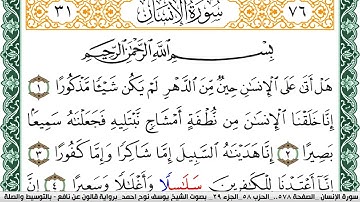 ٣١ سُورَةُ الإِنسَانِ ٧٦
بِسْمِ اللَّهِ الرَّحْمَٰنِ الرَّحِيمِ
هَلْ أَتَىٰ عَلَى ٱلْإِنسَٰنِ حِينٌ مِّنَ ٱلدَّهْرِ لَمْ يَكُن شَيْـًٔا مَّذْكُورًا ١
إِنَّا خَلَقْنَا ٱلْإِنسَٰنَ مِن نُّطْفَةٍ أَمْشَاجٍ نَّبْتَلِيهِ فَجَعَلْنَٰهُ سَمِيعًۢا
بَصِيرًا ٢ إِنَّا هَدَيْنَٰهُ ٱلسَّبِيلَ إِمَّا شَاكِرًا وَإِمَّا كَفُورًا ٣
إِنَّا أَعْتَدْنَا لِلْكَٰفِرِينَ سَلَٰسِلًا وَأَغْلَٰلًا وَسَعِيرًا ٤ إِنَّ
سورة الإنسان . الصفحة ٥٧٨.. الحزب ٥٨ .الجزء ٢٩ بصوت الشيخ يوسف نوح احمد برواية قالون عن نافع - بالتوسيط والصلة